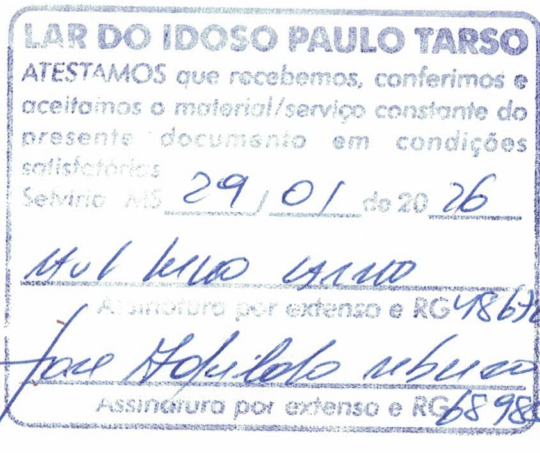 LAR DO IDOSO PAULO TARSO
ATESTAMOS que recebemos, conferimos e
aceitamos o material/serviço constante do
presente documento em condições
satisfatórias
Selvíria MS 29 / 01 de 20 26
Assinatura por extenso e RG 4867
José
Assinatura por extenso e RG 6898